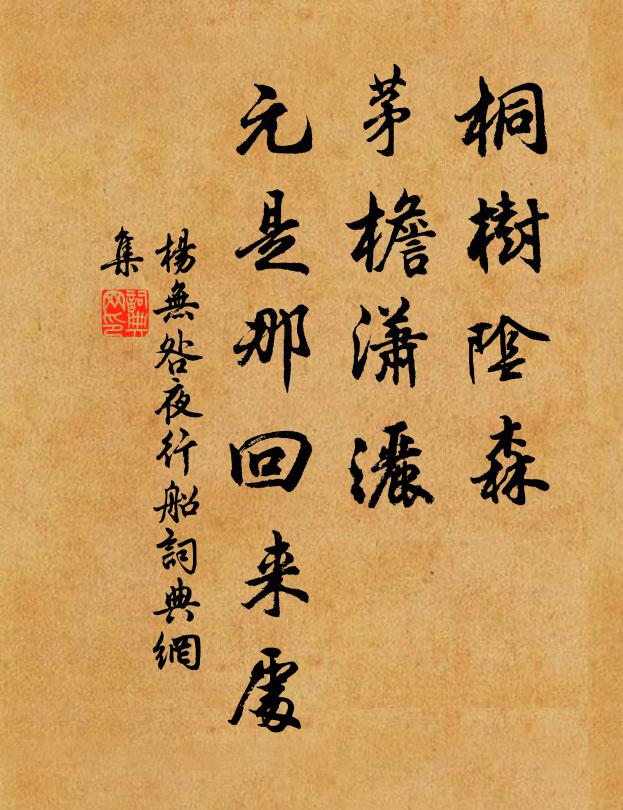 桐樹陰森
茅檐瀟灑
元是那回来處
楊無咎夜行船詞典網
集
詞典網印